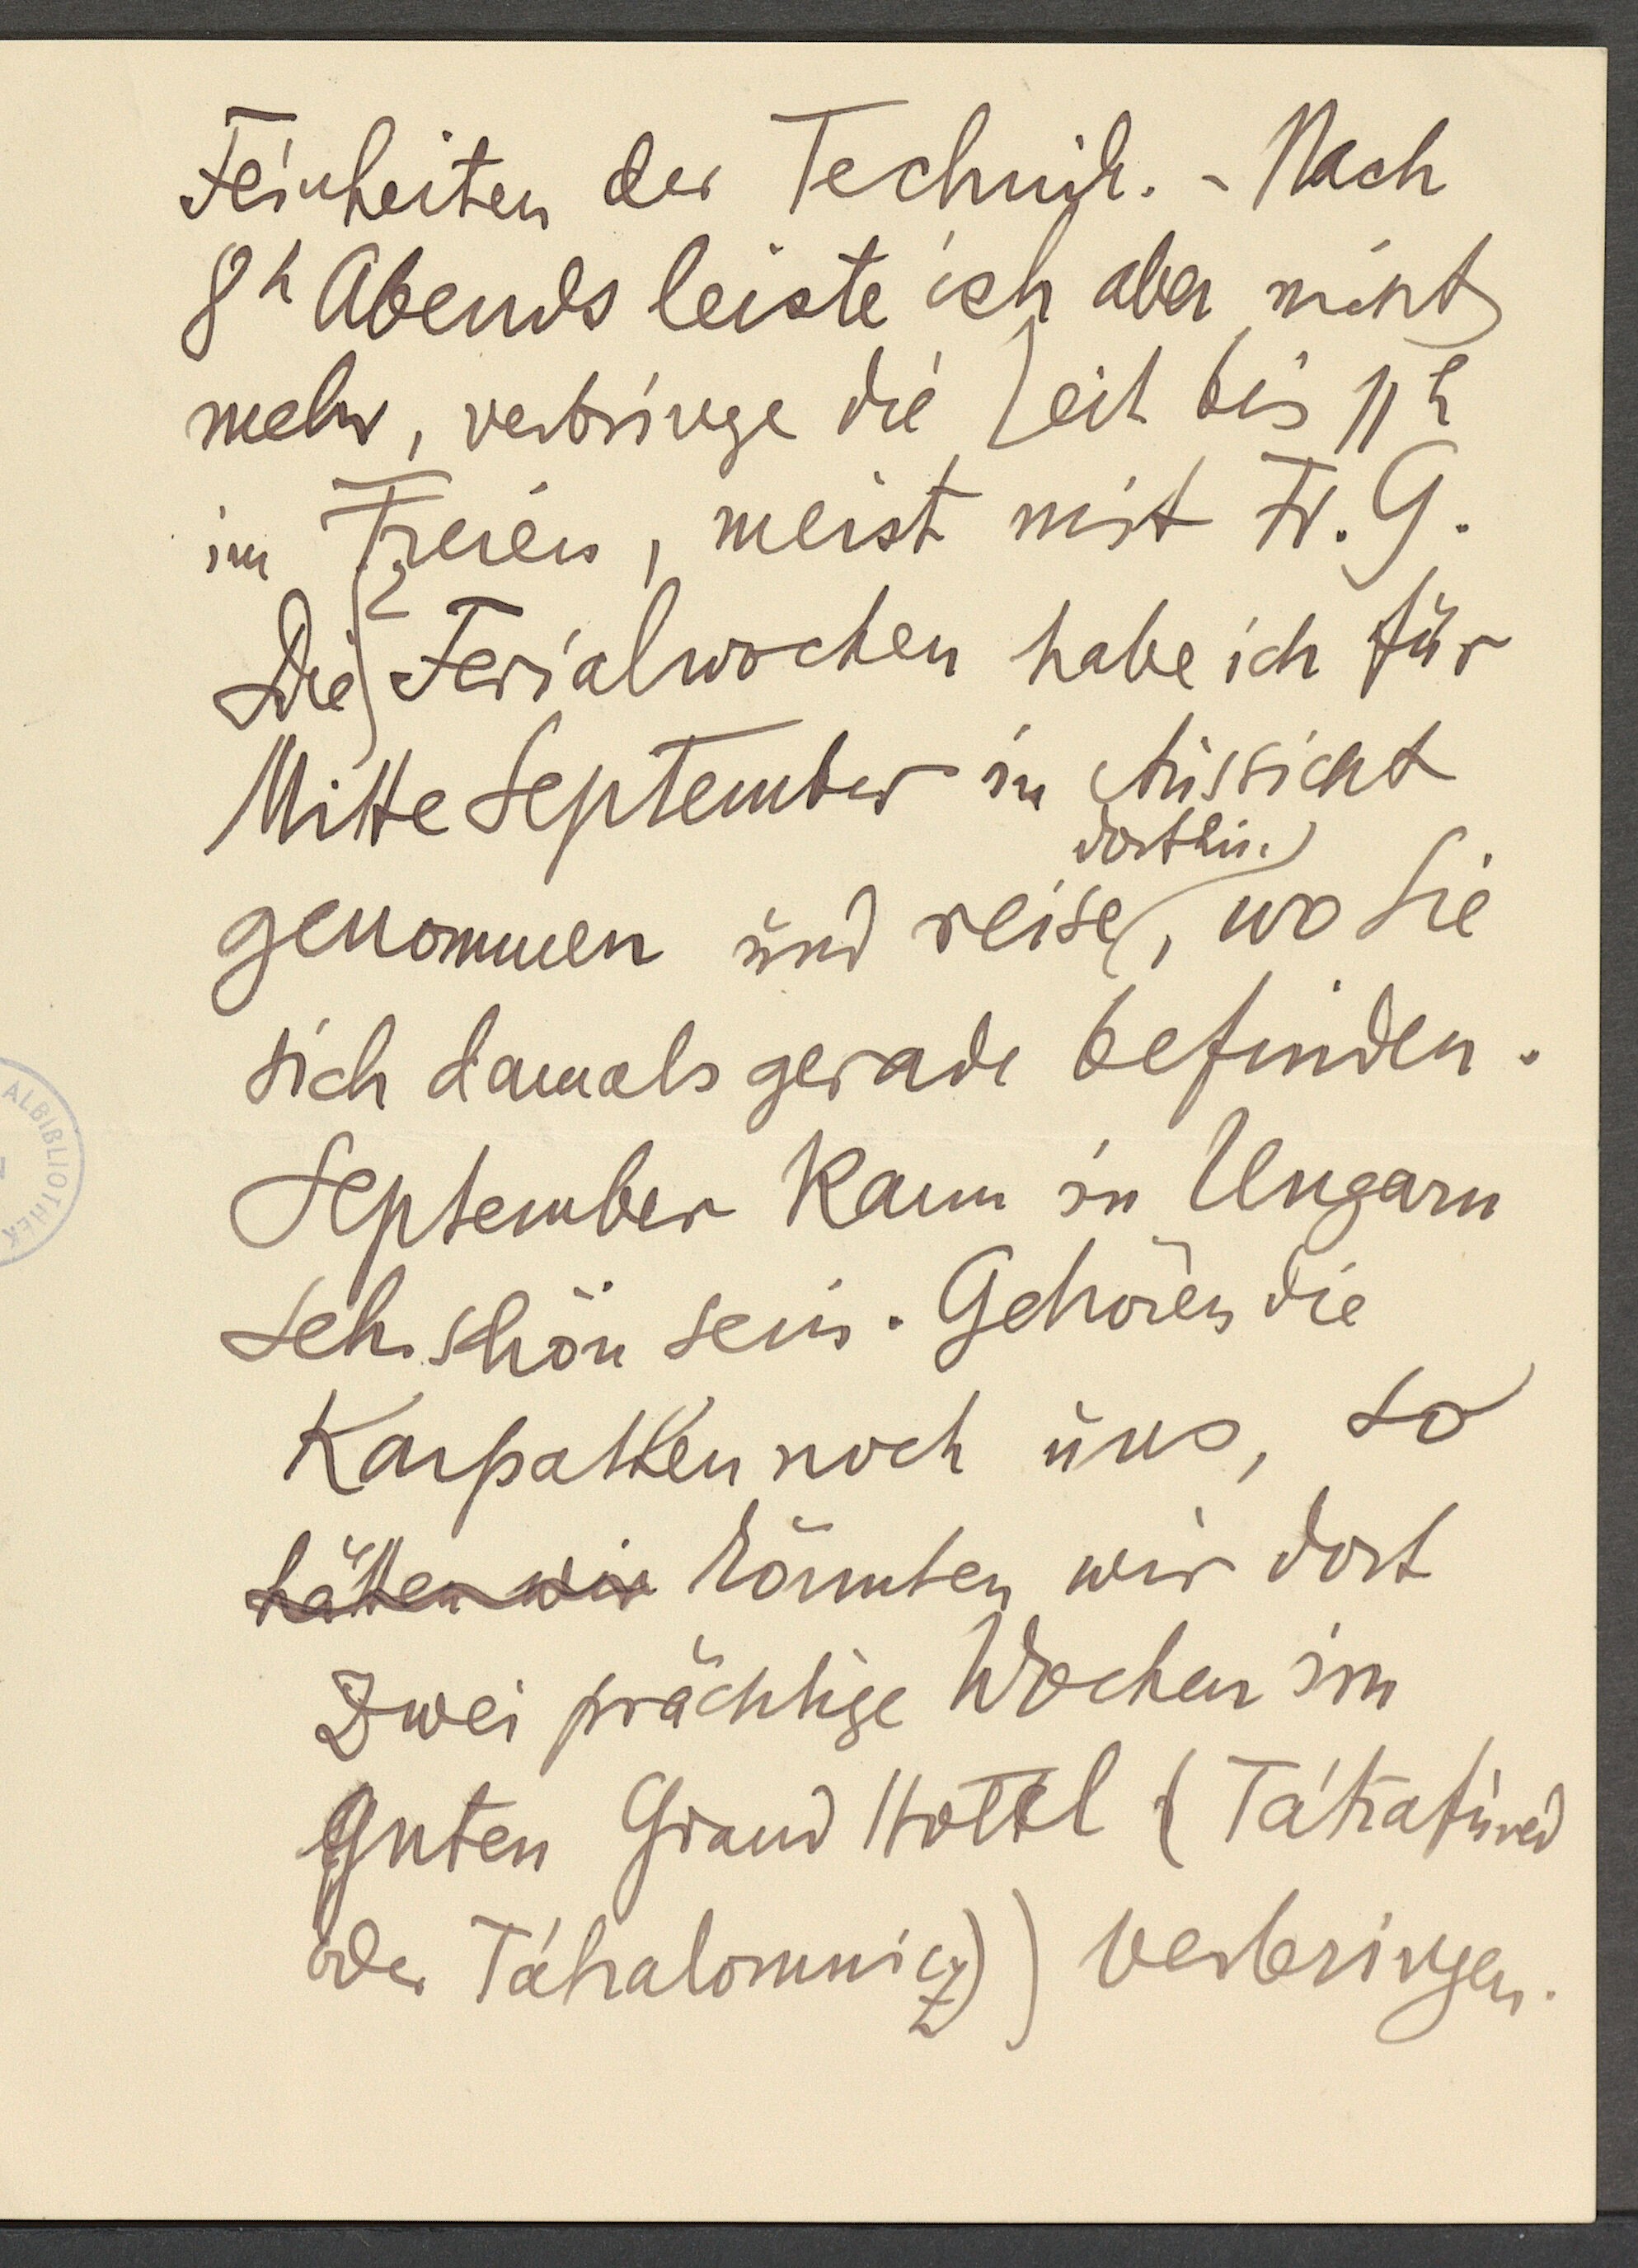 Feinheiten der Technik. - Nach
8h Abends leiste ich aber nichts
mehr, verbringe die Zeit bis 11h
im Freien, meist mit Fr. G.
Die 2 Ferialwochen habe ich für
Mitte September in Aussicht
genommen und reise dorthin, wo Sie
sich damals gerade befinden.
September kann in Ungarn
sehr schön sein. Gehören die
Karpathen noch uns, so
hätten wir könnten wir dort
zwei prächtige Wochen im
guten Grand Hotel (Tátrafüred
oder Tátralomnicz) verbringen.
ALBIBLIOTHEK